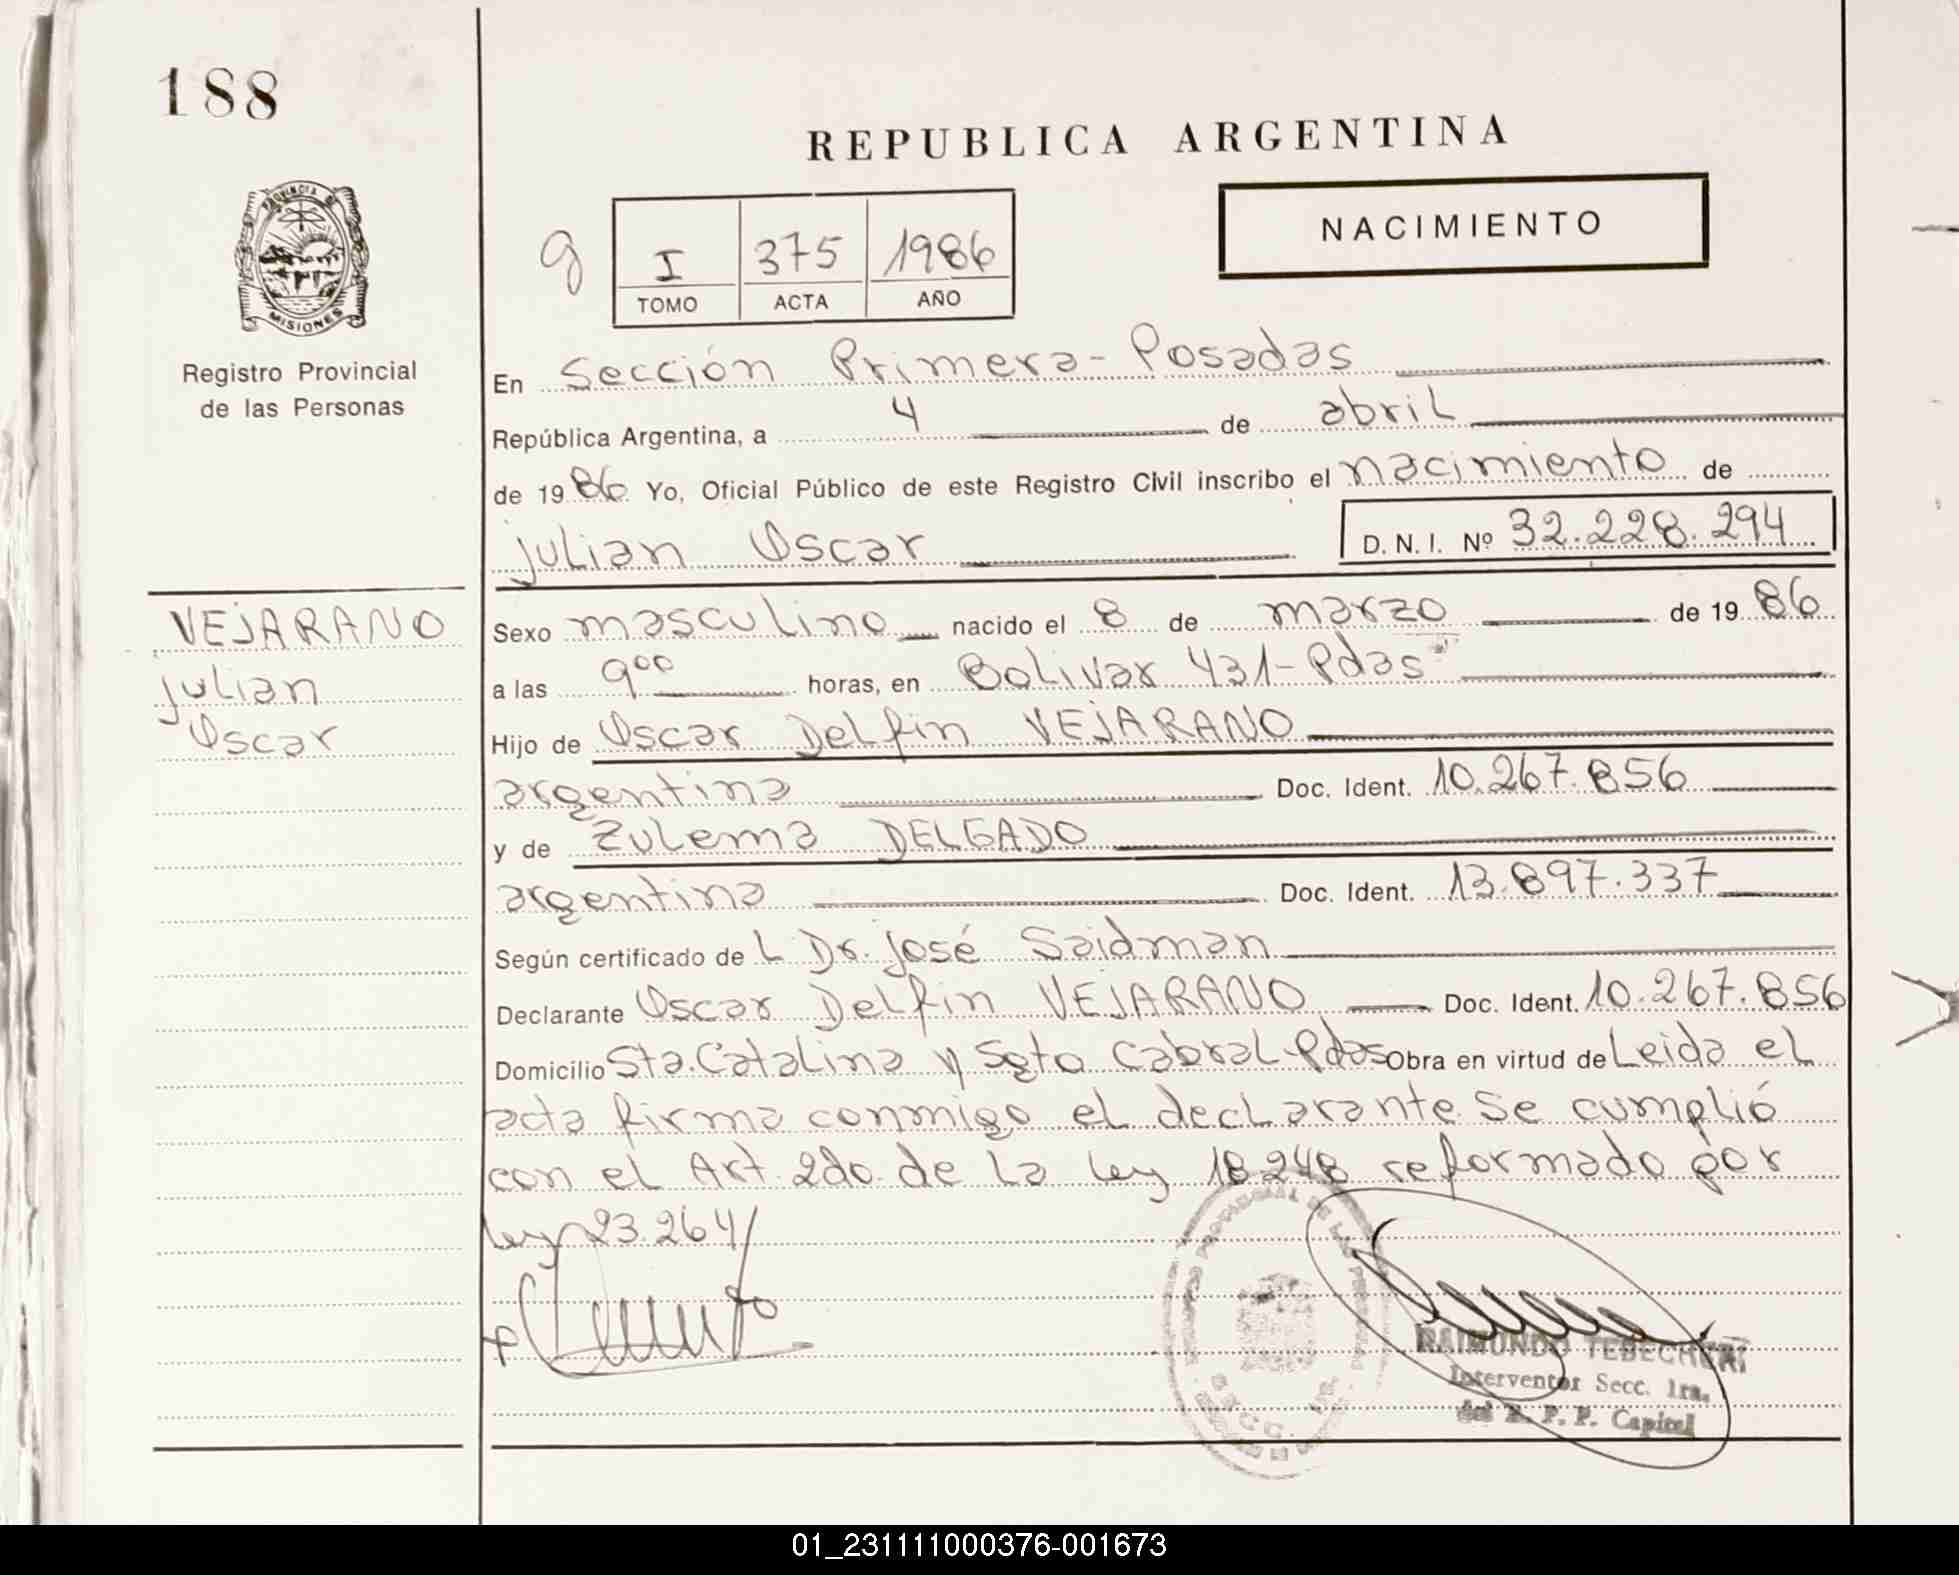 188
REPUBLICA ARGENTINA
NACIMIENTO
g
I 375 1986
TOMO ACTA AÑO
PROVINCIA DE
MISIONES
Registro Provincial
de las Personas
En Sección Primera - Posadas
República Argentina, a 4 de abril
de 1986 Yo, Oficial Público de este Registro Civil inscribo el nacimiento de
julian Oscar D. N. I. Nº 32.228.294
VEJARANO
julian
Oscar
Sexo masculino nacido el 8 de marzo de 1986
a las 9⁰⁰ horas, en Bolivar 431 - Pdas
Hijo de Oscar Delfin VEJARANO
argentina Doc. Ident. 10.267.856
y de Zulema DELGADO
argentina Doc. Ident. 13.897.337
Según certificado de L Dr. josé Saidman
Declarante Oscar Delfin VEJARANO Doc. Ident. 10.267.856
Domicilio Sta. Catalina y Sgto Cabral - Pdas Obra en virtud de Leida el
acta firma conmigo el declarante. Se cumplió
con el Art. 2do. de la ley 18.248 reformado por
ley 23.264/
REGISTRO PROVINCIAL DE LAS PERSONAS
SECC.
RAIMUNDO TEBECHERI
Interventor Secc. 1ra.
del R. P. P. Capital
01_231111000376-001673